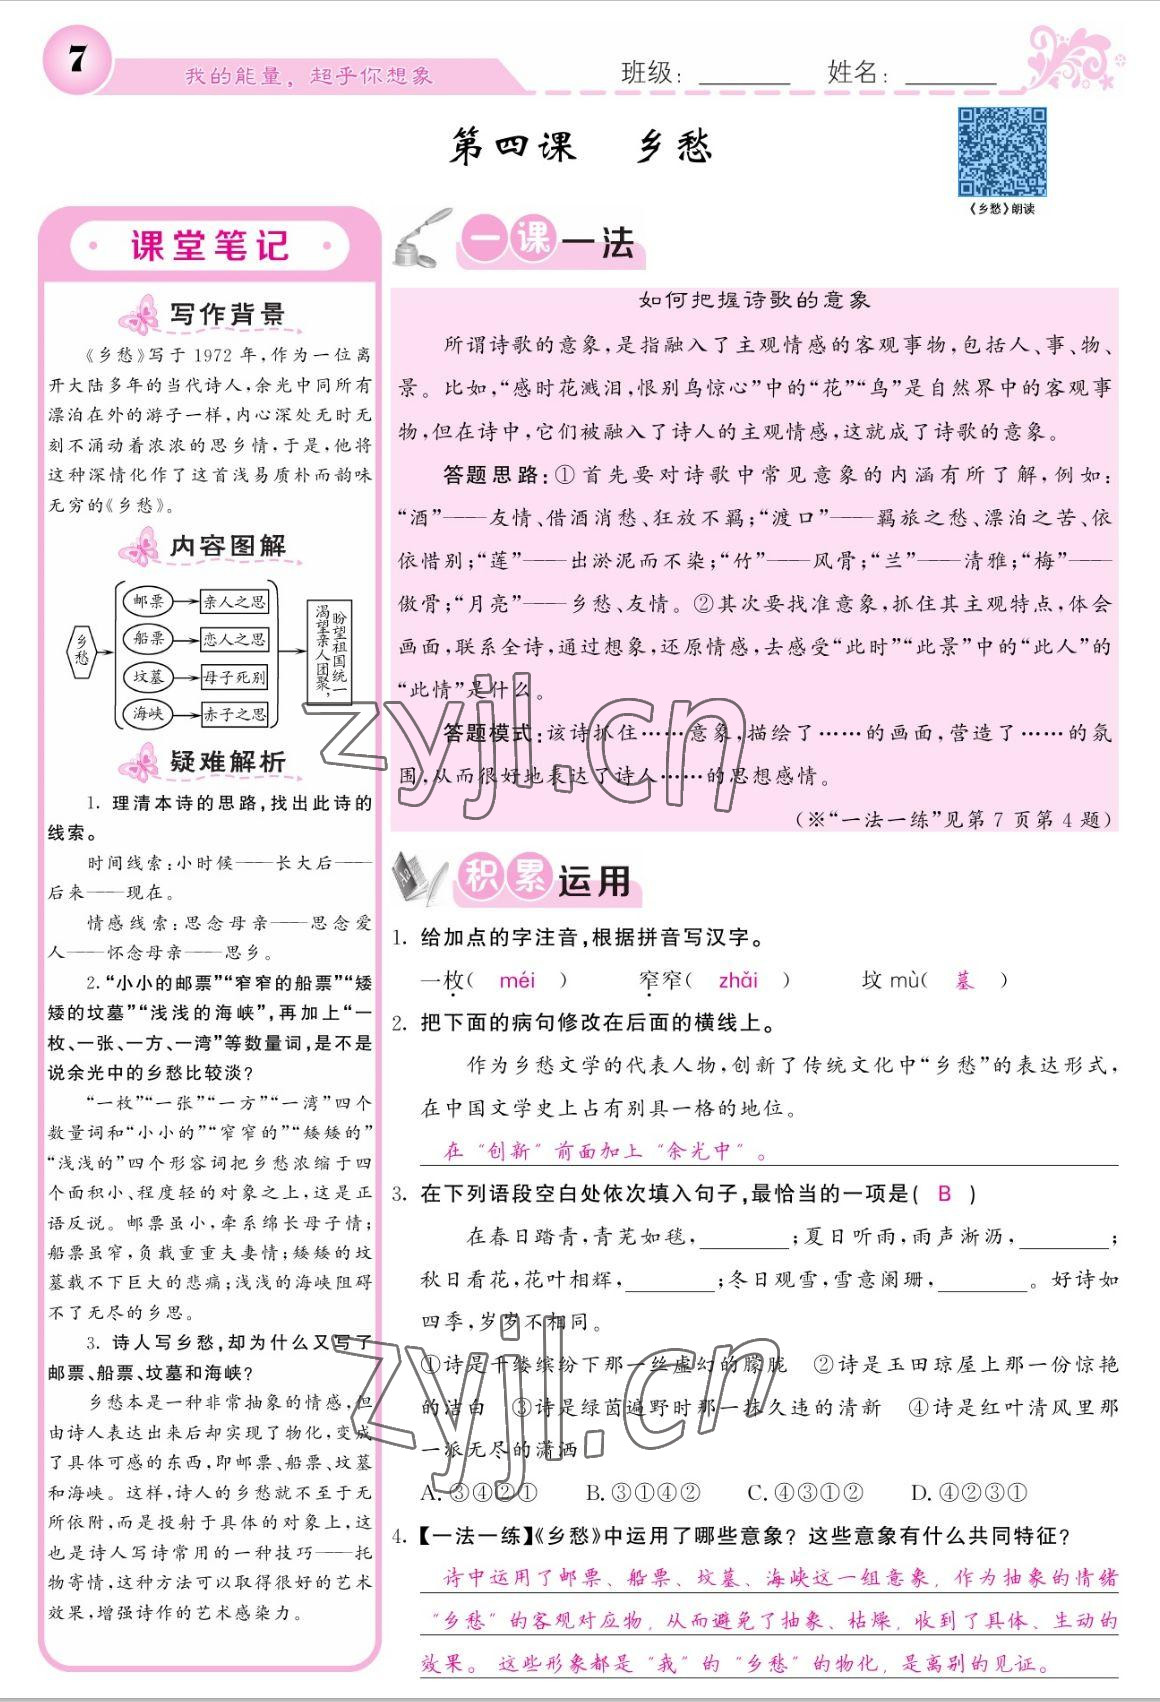 7
我的能量，超乎你想象
班级：
姓名：
第四课 乡愁
《乡愁》朗读
课堂笔记
写作背景
《乡愁》写于 1972 年，作为一位离
开大陆多年的当代诗人，余光中同所有
漂泊在外的游子一样，内心深处无时无
刻不涌动着浓浓的思乡情，于是，他将
这种深情化作了这首浅易质朴而韵味
无穷的《乡愁》。
内容图解
乡愁
邮票
亲人之思
船票
恋人之思
坟墓
母子死别
海峡
赤子之思
渴望亲人团聚，
盼望祖国统一
疑难解析
1. 理清本诗的思路，找出此诗的
线索。
时间线索：小时候——长大后——
后来——现在。
情感线索：思念母亲——思念爱
人——怀念母亲——思乡。
2.“小小的邮票”“窄窄的船票”“矮
矮的坟墓”“浅浅的海峡”，再加上“一
枚、一张、一方、一湾”等数量词，是不是
说余光中的乡愁比较淡？
“一枚”“一张”“一方”“一湾”四个
数量词和“小小的”“窄窄的”“矮矮的”
“浅浅的”四个形容词把乡愁浓缩于四
个面积小、程度轻的对象之上，这是正
语反说。邮票虽小，牵系绵长母子情；
船票虽窄，负载重重夫妻情；矮矮的坟
墓载不下巨大的悲痛；浅浅的海峡阻碍
不了无尽的乡思。
3. 诗人写乡愁，却为什么又写了
邮票、船票、坟墓和海峡？
乡愁本是一种非常抽象的情感，但
由诗人表达出来后却实现了物化，变成
了具体可感的东西，即邮票、船票、坟墓
和海峡。这样，诗人的乡愁就不至于无
所依附，而是投射于具体的对象上，这
也是诗人写诗常用的一种技巧——托
物寄情，这种方法可以取得很好的艺术
效果，增强诗作的艺术感染力。
一课一法
如何把握诗歌的意象
所谓诗歌的意象，是指融入了主观情感的客观事物，包括人、事、物、
景。比如，“感时花溅泪，恨别鸟惊心”中的“花”“鸟”是自然界中的客观事
物，但在诗中，它们被融入了诗人的主观情感，这就成了诗歌的意象。
答题思路：①首先要对诗歌中常见意象的内涵有所了解，例如：
“酒”——友情、借酒消愁、狂放不羁；“渡口”——羁旅之愁、漂泊之苦、依
依惜别；“莲”——出淤泥而不染；“竹”——风骨；“兰”——清雅；“梅”——
傲骨；“月亮”——乡愁、友情。②其次要找准意象，抓住其主观特点，体会
画面，联系全诗，通过想象，还原情感，去感受“此时”“此景”中的“此人”的
“此情”是什么。
答题模式：该诗抓住……意象，描绘了……的画面，营造了……的氛
围，从而很好地表达了诗人……的思想感情。
（※“一法一练”见第 7 页第 4 题）
积累运用
1. 给加点的字注音，根据拼音写汉字。
一枚（ méi ） 窄窄（ zhǎi ） 坟 mù（ 墓 ）
2. 把下面的病句修改在后面的横线上。
作为乡愁文学的代表人物，创新了传统文化中“乡愁”的表达形式，
在中国文学史上占有别具一格的地位。
在“创新”前面加上“余光中”。
3. 在下列语段空白处依次填入句子，最恰当的一项是（ B ）
在春日踏青，青芜如毯，________；夏日听雨，雨声淅沥，________；
秋日看花，花叶相辉，________；冬日观雪，雪意阑珊，________。好诗如
四季，岁岁不相同。
①诗是千缕缤纷下那一丝虚幻的朦胧 ②诗是玉田琼屋上那一份惊艳
的洁白 ③诗是绿茵遍野时那一抹久违的清新 ④诗是红叶清风里那
一派无尽的潇洒
A. ③④②① B. ③①④② C. ④③①② D. ④②③①
4. 【一法一练】《乡愁》中运用了哪些意象？这些意象有什么共同特征？
诗中运用了邮票、船票、坟墓、海峡这一组意象，作为抽象的情绪
“乡愁”的客观对应物，从而避免了抽象、枯燥，收到了具体、生动的
效果。这些形象都是“我”的“乡愁”的物化，是离别的见证。
zyjl.cn
zyjl.cn